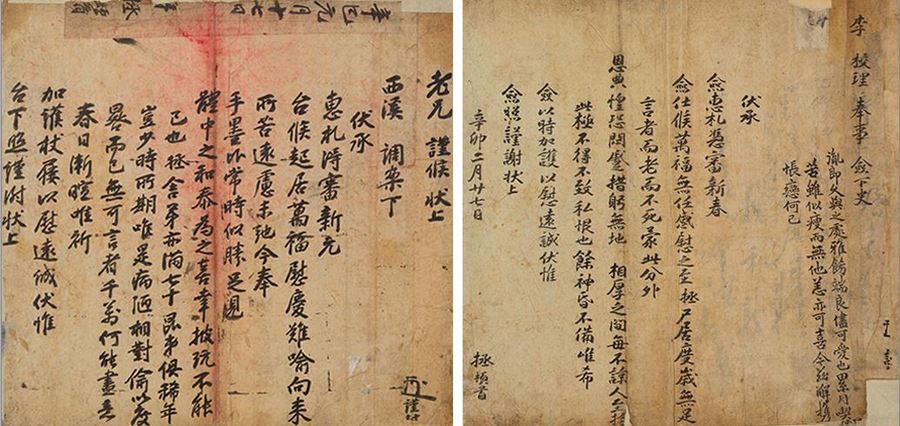 老兄 謹候狀上
西溪 調案下
伏承
惠札得審新元
台候起居萬福慰慶難喻向来
所苦遠慮未弛今奉
手墨比常時似勝足見
體中之和泰為之喜幸披玩不能
已也拯舍弟亦滿七十昆弟俱稀年
豈少時所期唯是病陋相對偷以度
晷而已無可言者千萬何能盡意
春日漸暄唯祈
加護杖屨以慰遠誠伏惟
台下照謹謝狀上
辛巳元月十七日
李 校理 奉事 僉下史
胤郎久與之處雅飭端良儘可愛也累月喫
苦雖似瘦而無他恙亦可喜今給解携
悵戀何已
伏承
僉惠札憑審新春
僉仕候萬福無任感慰之至 拯尸居度歲無足
言者而老而不死蒙此分外
恩典惶恐悶蹙措躬無地 相厚之間每不諒人至於
此極不得不致私恨也餘神昏不備唯希
僉以時加護以慰遠誠伏惟
僉照謹謝狀上
辛卯二月廿七日
拯頓首